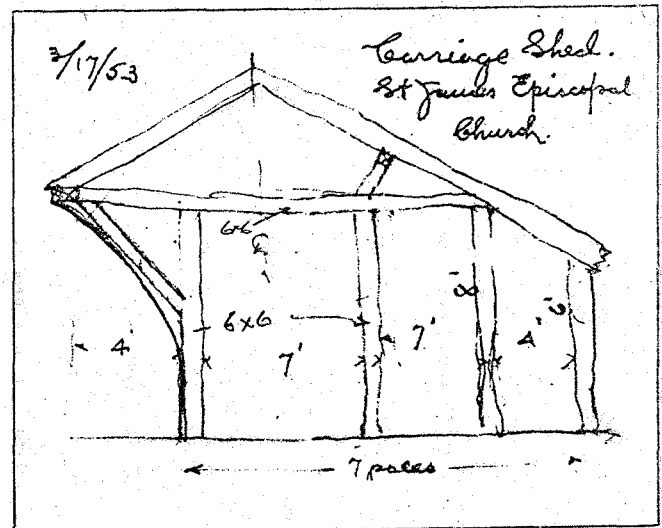 3/17/53
Carriage Shed.
St James Episcopal
Church.
6x6
8'
6'
4
6x6
7'
7'
4'
7 poles